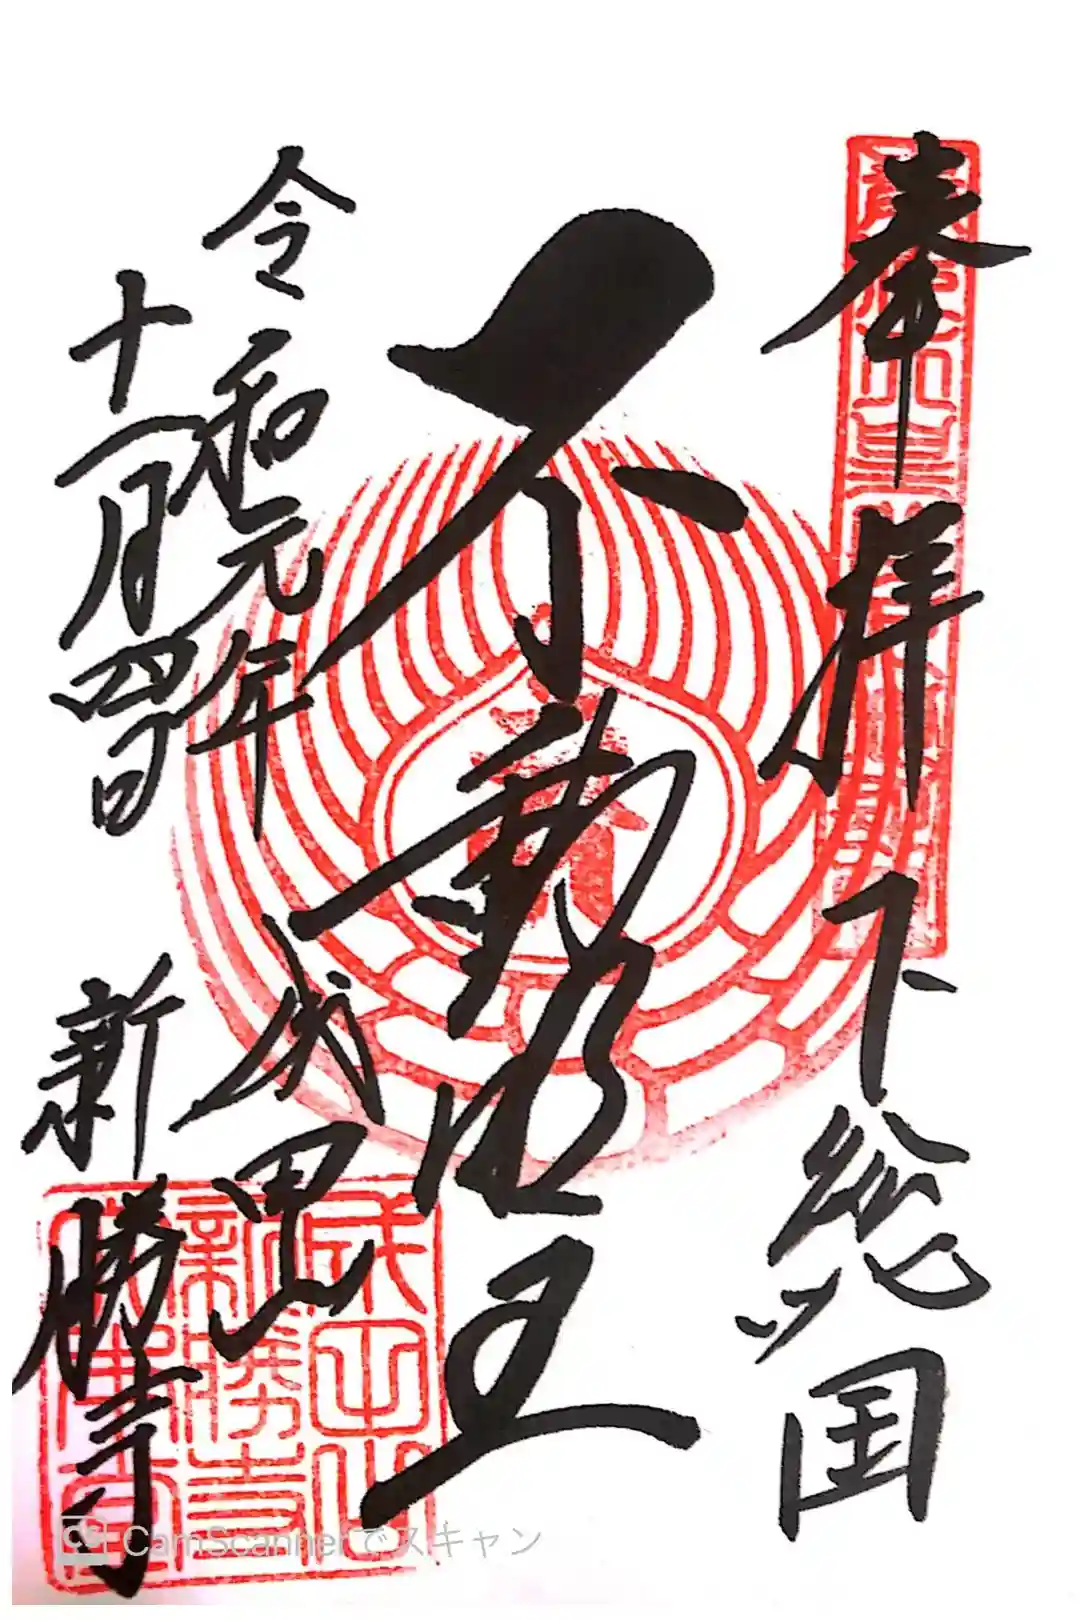 奉拝 下総国
不動明王
令和元年
十一月四日
成田山
新勝寺
成田山
新勝寺
CamScannerでスキャン